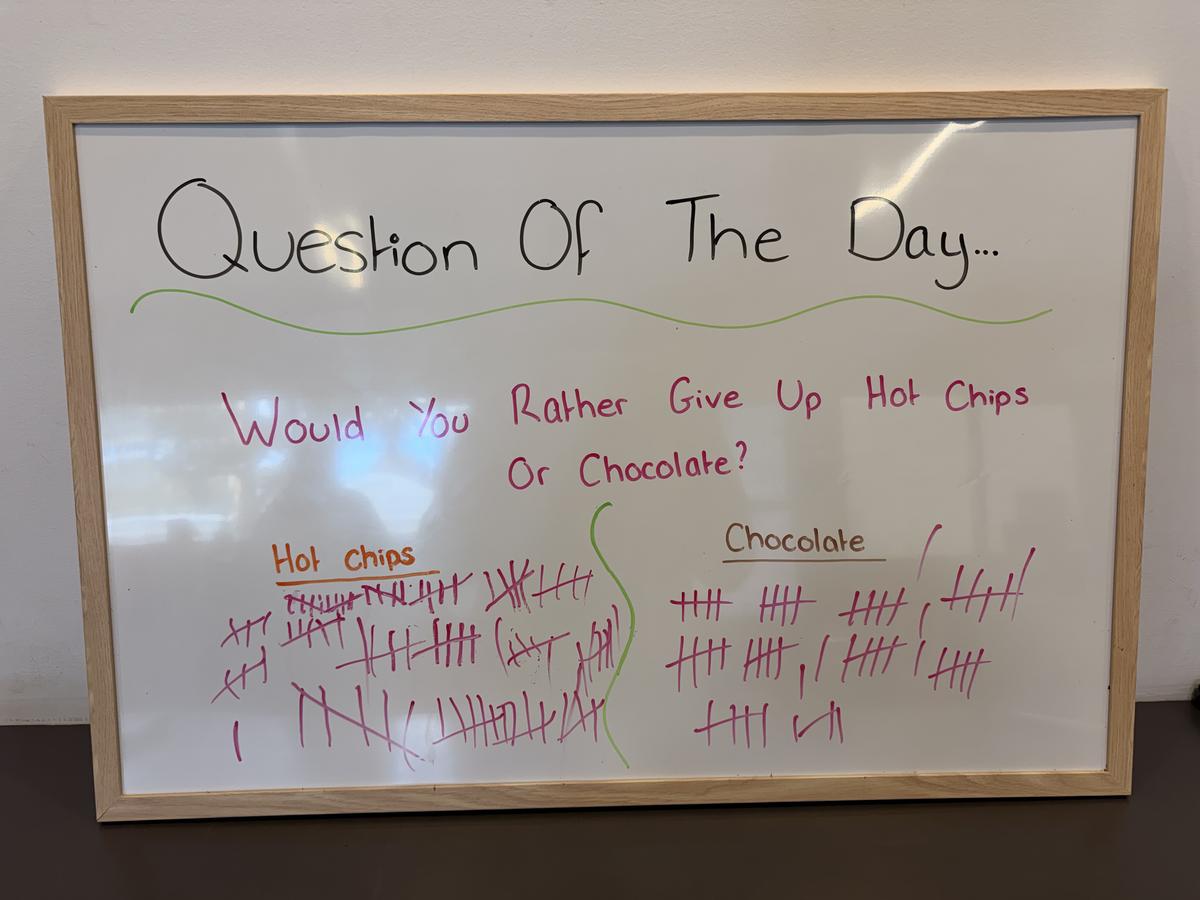 Question Of The Day...
Would You Rather Give Up Hot Chips
Or Chocolate?
Hot Chips
Chocolate